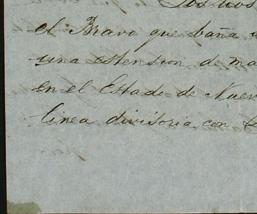 Los rios
el Bravo que baña u
una estension d ma
en el Estado de Nuev
linea divisoria con